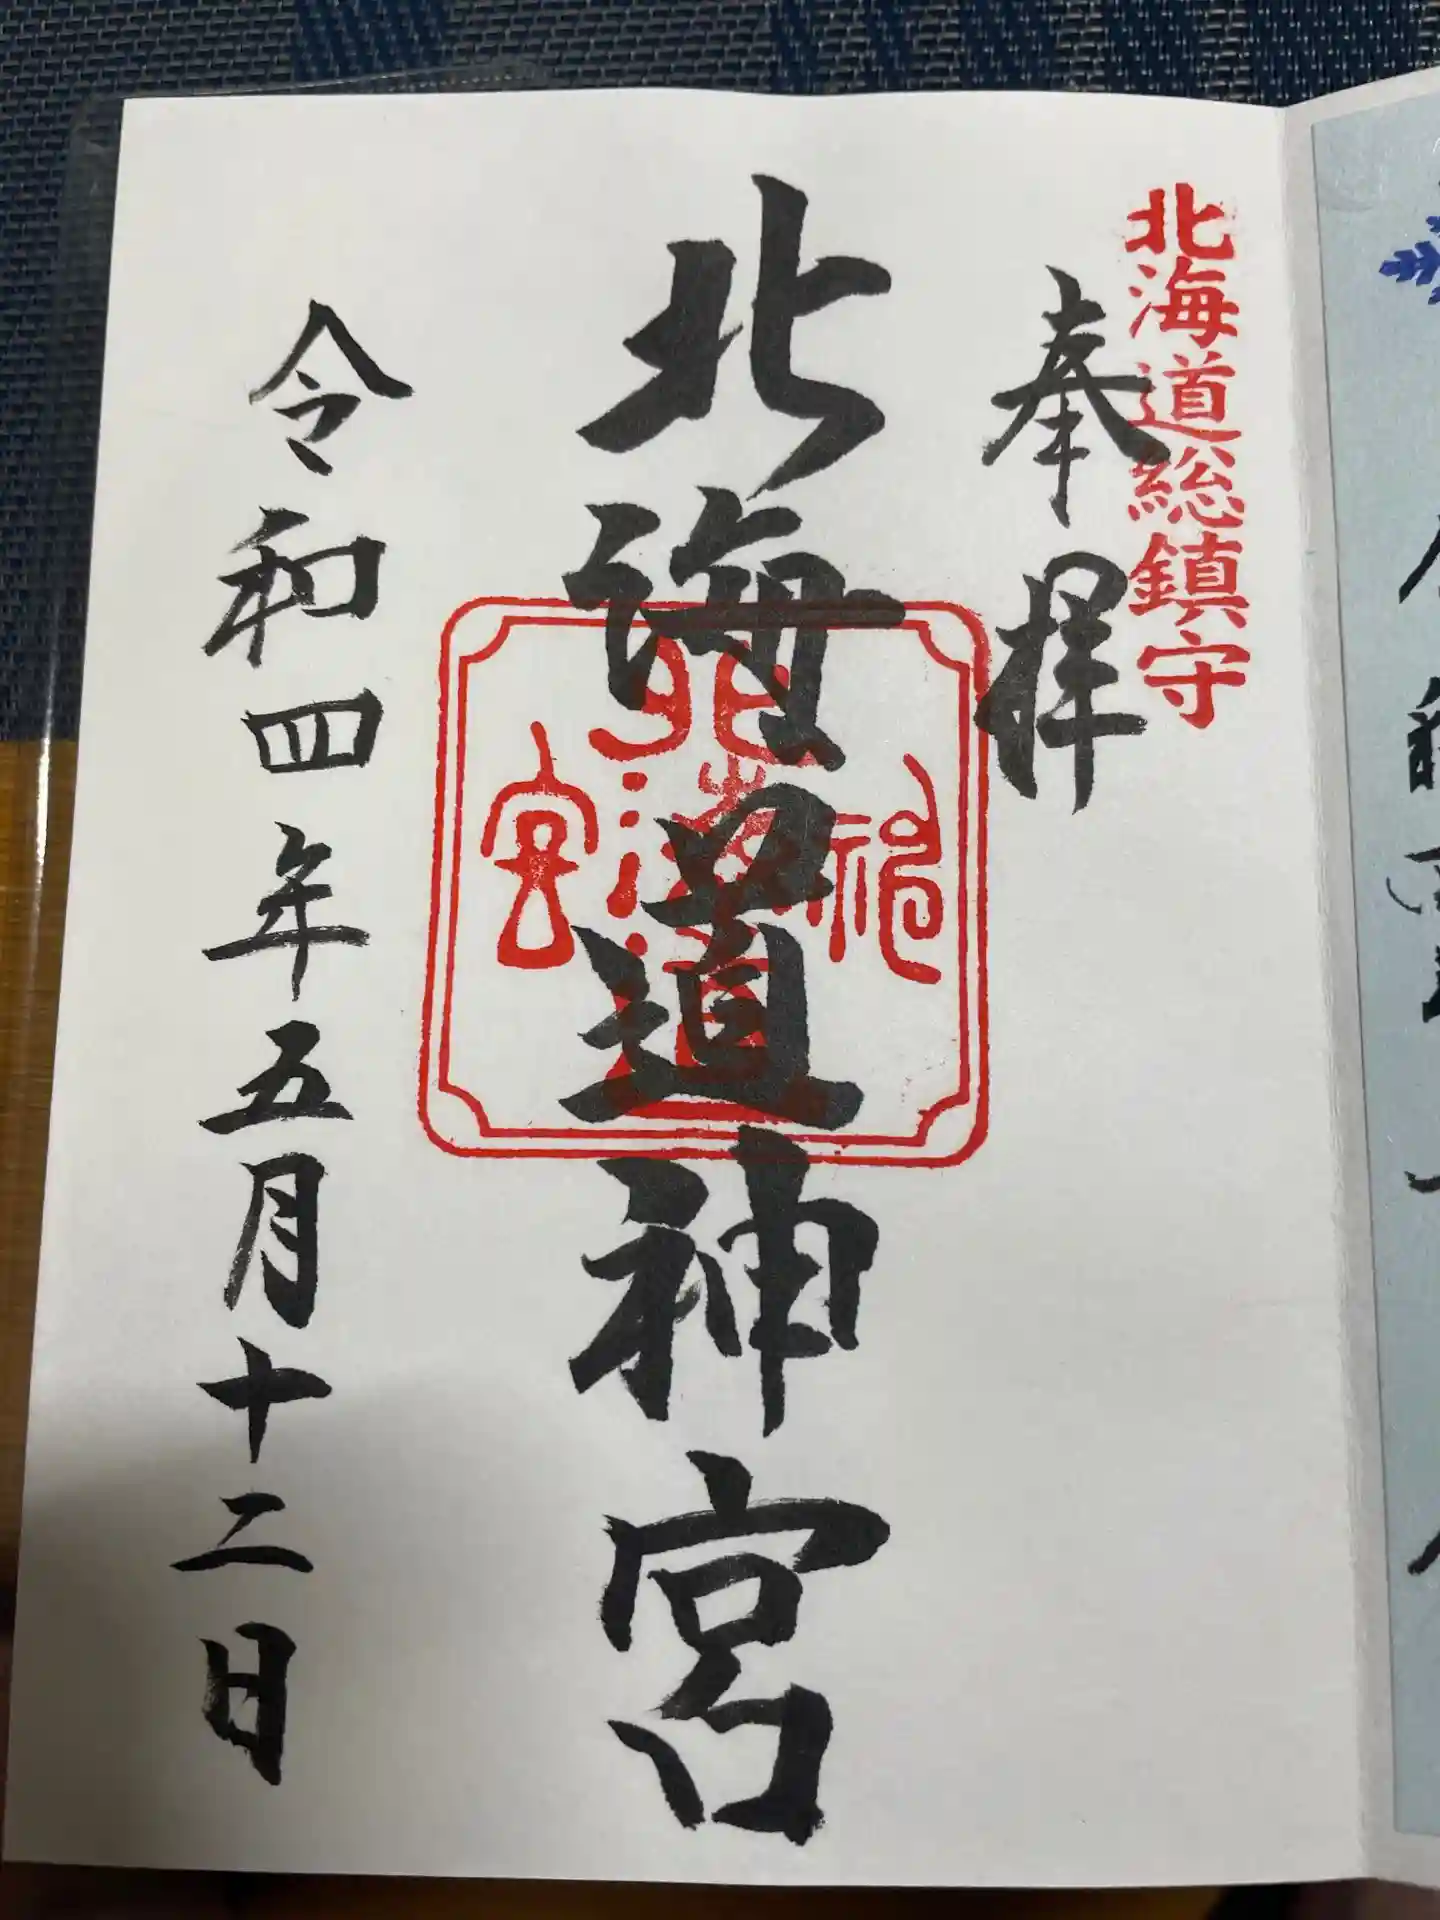 北海道総鎮守
奉拝
北海道神宮
北海道神宮
令和四年五月十二日